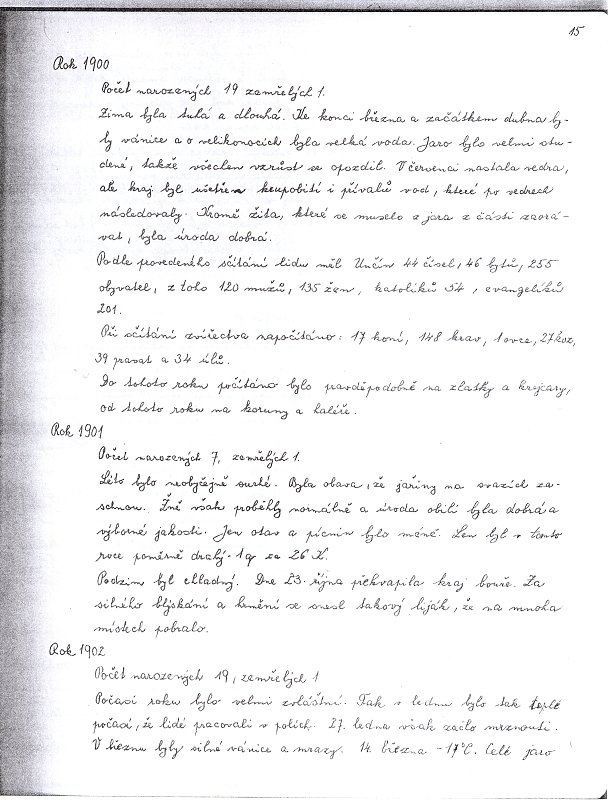 15
Rok 1900
Počet narozených 19 zemřelých 1.
Zima byla tuhá a dlouhá. Ke konci března a začátkem dubna by-
ly vánice a o velikonocích byla velká voda. Jaro bylo velmi stu-
dené, takže všechen vzrůst se opozdil. V červenci nastala vedra,
ale kraj byl ušetřen krupobití i přívalů vod, které po vedrech
následovaly. Kromě žita, které se muselo z jara z části zaorá-
vat, byla úroda dobrá.
Podle provedeného sčítání lidu měl Unčín 44 čísel, 46 bytů, 255
obyvatel, z toho 120 mužů, 135 žen, katolíků 54, evangelíků
201.
Při sčítání zvířectva napočítáno: 17 koní, 148 krav, 1 ovce, 27 koz,
39 prasat a 34 úlů.
Do tohoto roku počítáno bylo pravděpodobně na zlatky a krejcary,
od tohoto roku na koruny a haléře.
Rok 1901
Počet narozených 7, zemřelých 1.
Léto bylo neobyčejně suché. Byla obava, že jařiny na svazích za-
schnou. Žně však proběhly normálně a úroda obilí byla dobrá a
výborné jakosti. Jen otav a pícnin bylo méně. Len byl v tomto
roce poměrně drahý - 1 q za 26 K.
Podzim byl chladný. Dne 23. října překvapila kraj bouře. Za
silného blýskání a hřmění se snesl takový liják, že na mnoha
místech pobralo.
Rok 1902
Počet narozených 19, zemřelých 1
Počasí roku bylo velmi zvláštní. Tak v lednu bylo tak teplé
počasí, že lidé pracovali v polích. 27. ledna však začlo mrznouti.
V březnu byly silné vánice a mrazy. 14. března -17°C. Celé jaro